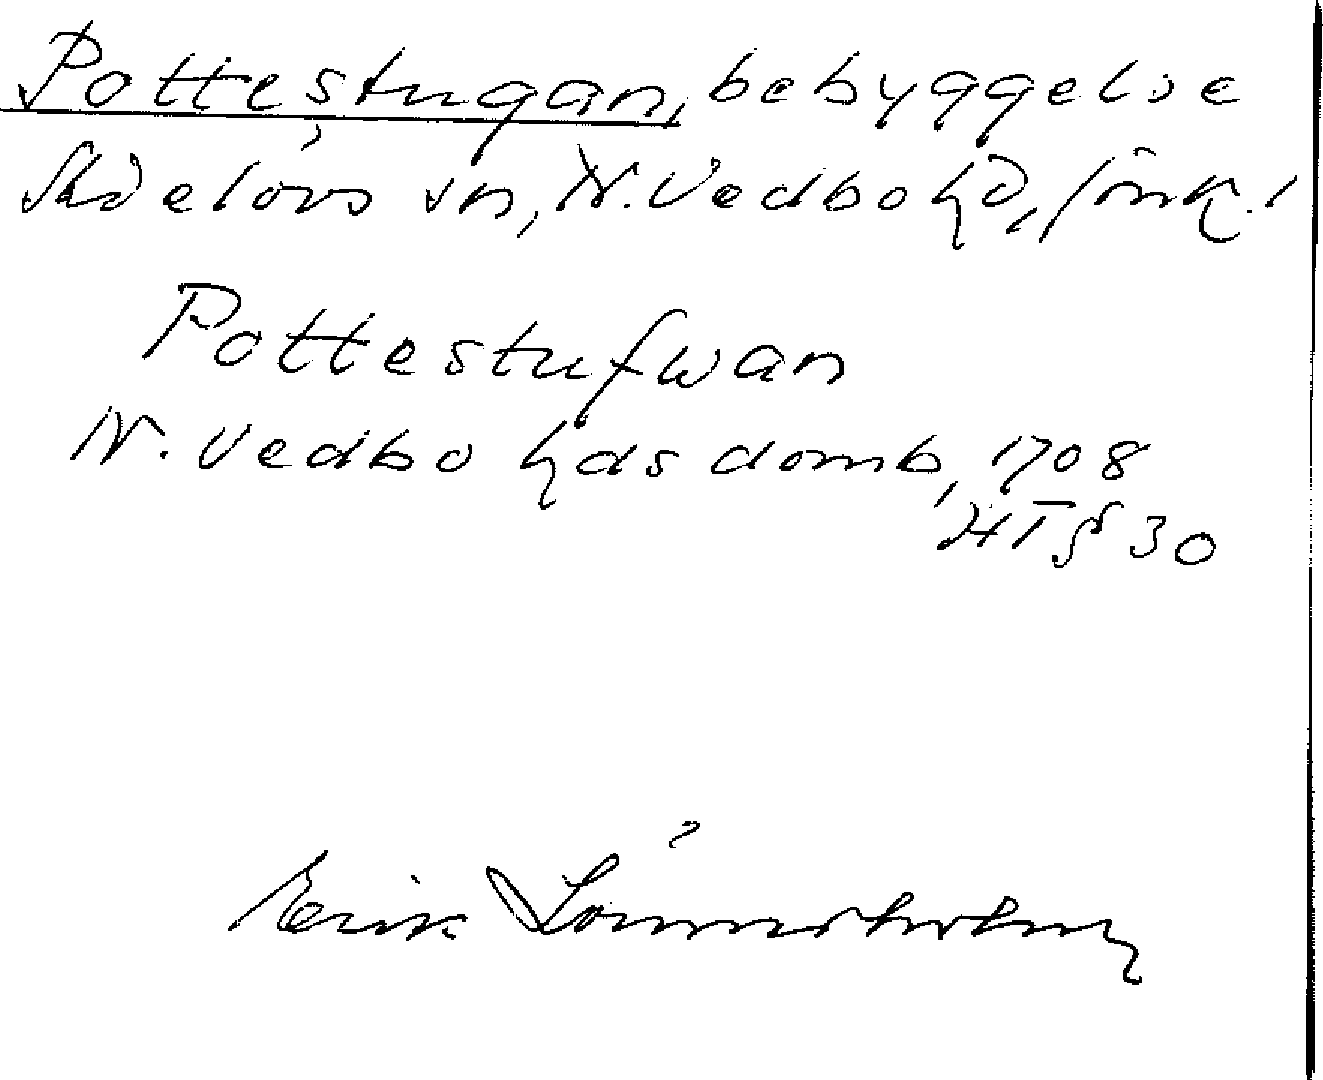 Pottestugan, bebyggelse
sn, N. Vedbo hd, Jönk. l
Pottestufwan
N. Vedbo hds domb, 1708
HT § 30
Erik Lönnerholm